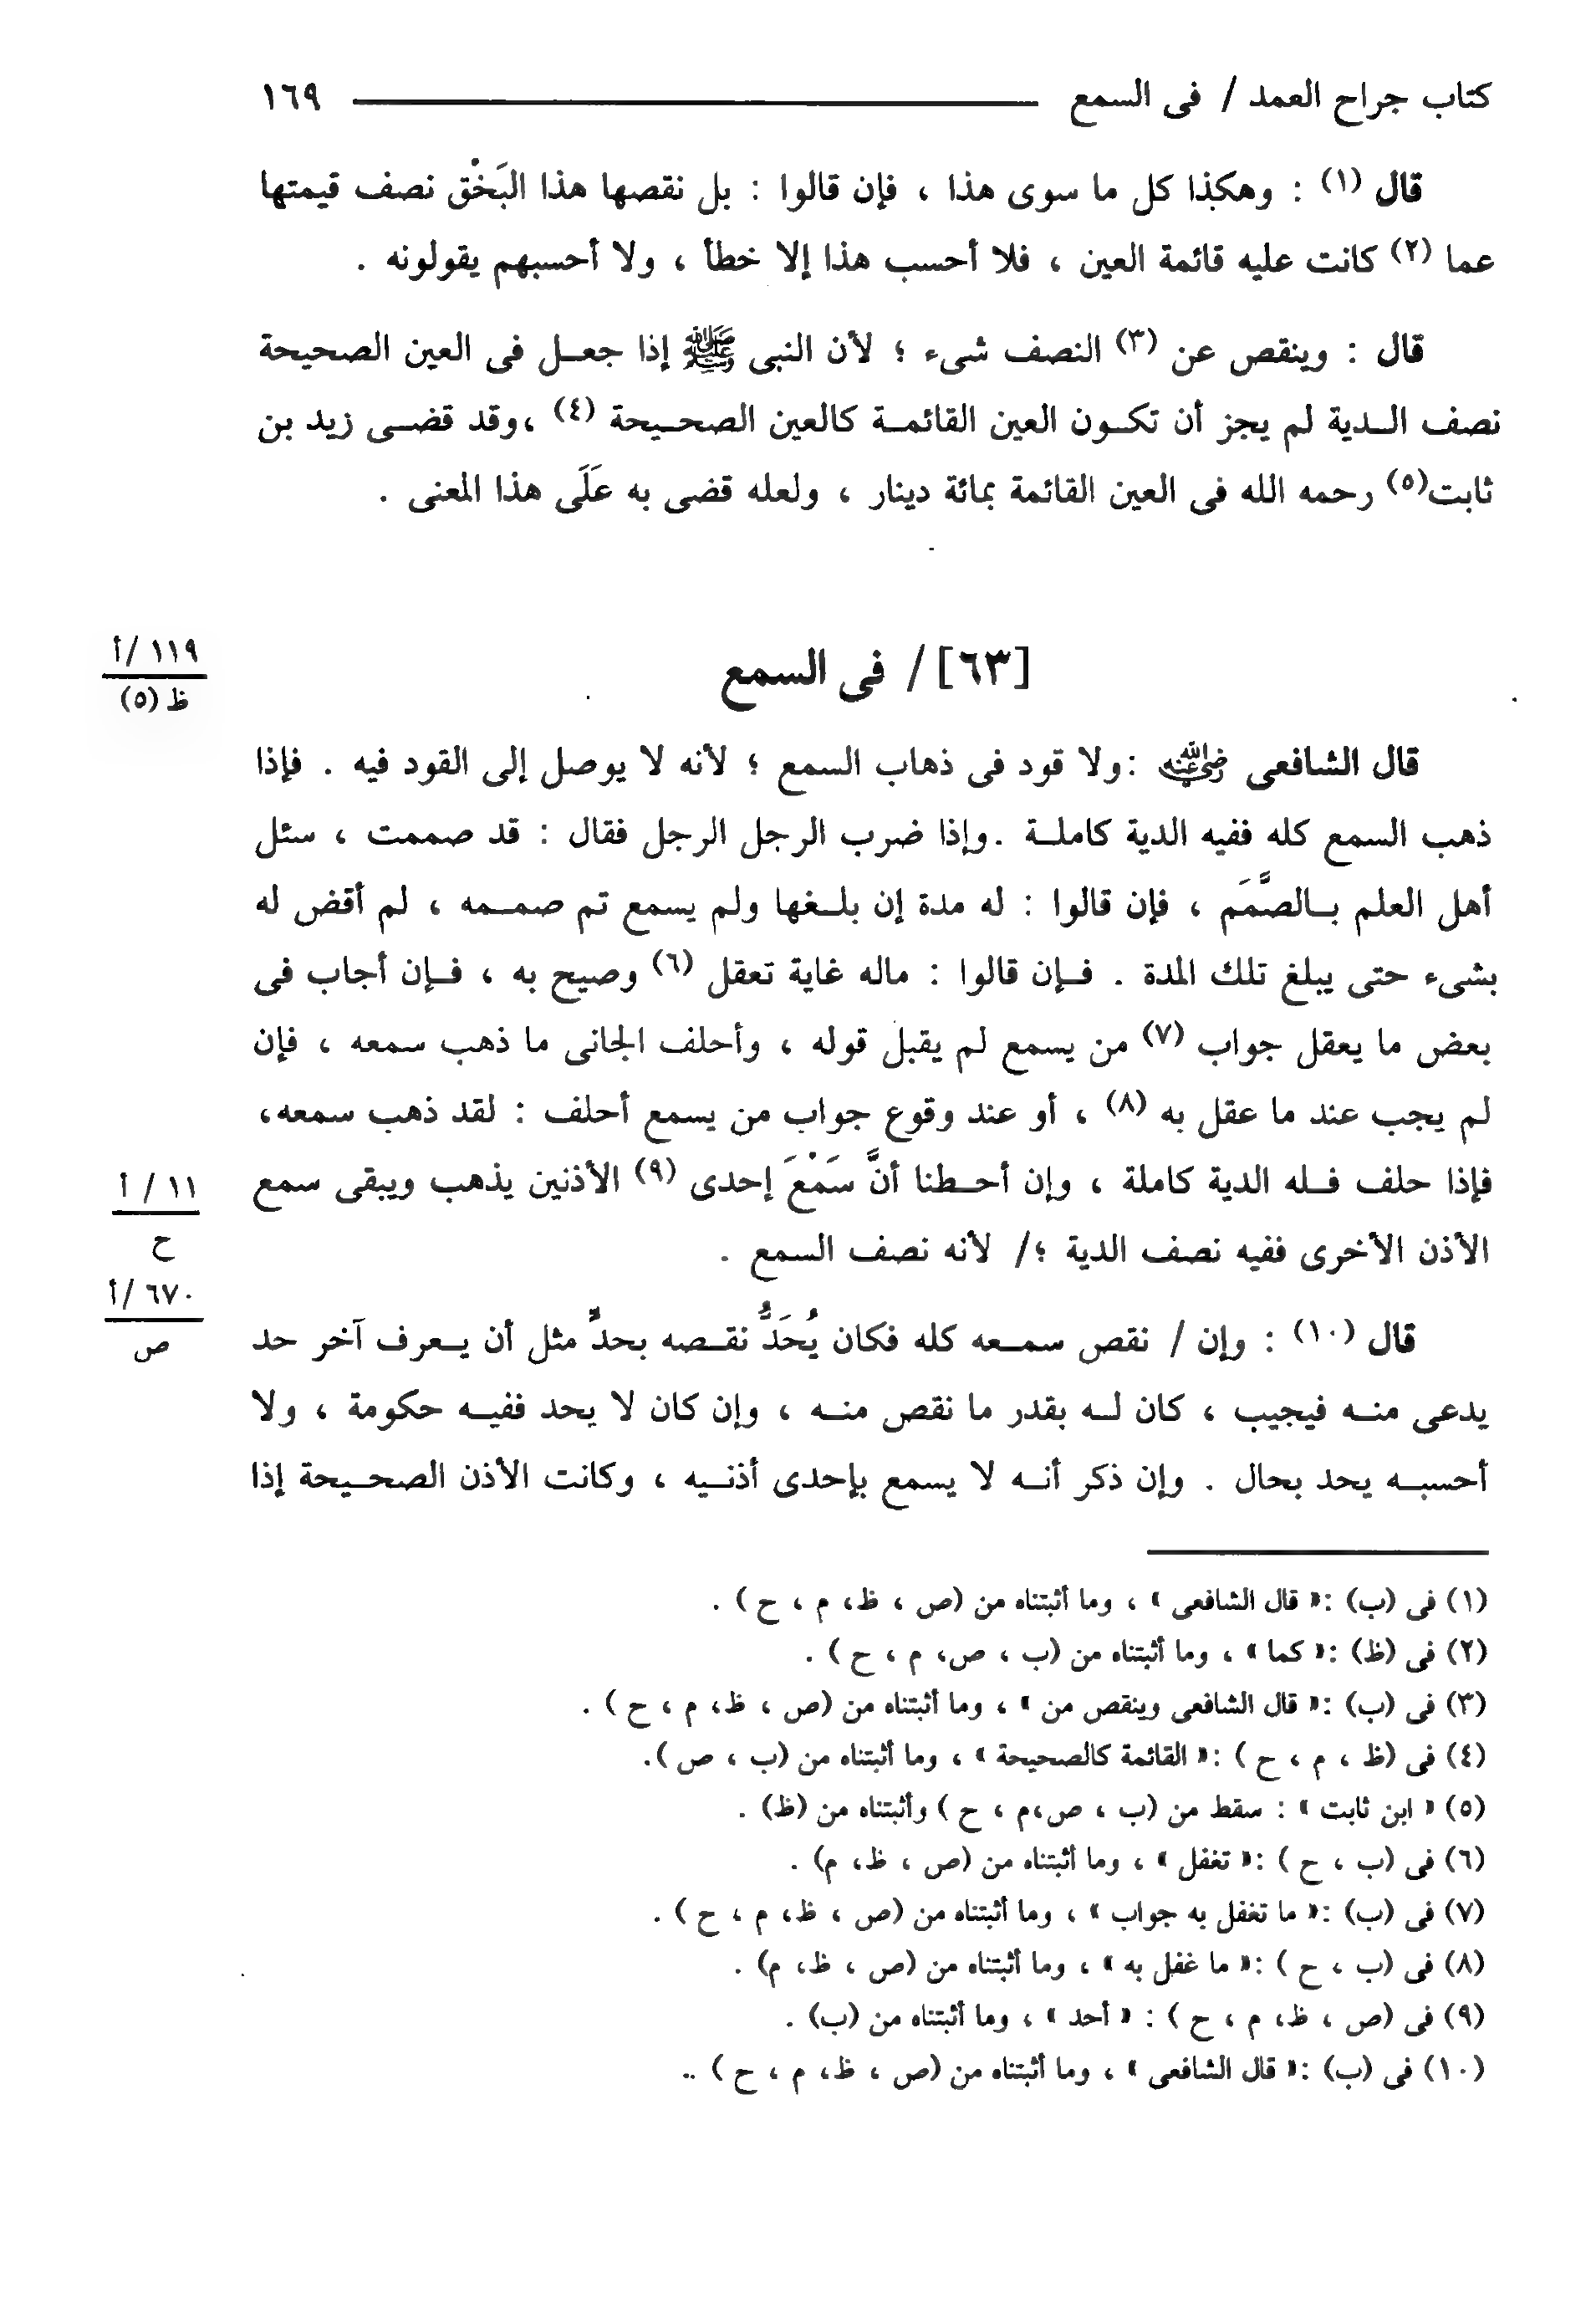 كتاب جراح العمد / فى السمع ١٦٩
قال (١) : وهكذا كل ما سوى هذا ، فإن قالوا : بل نقصها هذا البَخْق نصف قيمتها
عما (٢) كانت عليه قائمة العين ، فلا أحسب هذا إلا خطأ ، ولا أحسبهم يقولونه .
قال : وينقص عن (٣) النصف شىء ؛ لأن النبى ﷺ إذا جعل فى العين الصحيحة
نصف الدية لم يجز أن تكون العين القائمة كالعين الصحيحة (٤) ،وقد قضى زيد بن
ثابت(٥) رحمه الله فى العين القائمة بمائة دينار ، ولعله قضى به عَلَى هذا المعنى .
١١٩ /أ
ظ (٥)
[٦٣] / فى السمع
قال الشافعى رضي الله عنه :ولا قود فى ذهاب السمع ؛ لأنه لا يوصل إلى القود فيه . فإذا
ذهب السمع كله ففيه الدية كاملة .وإذا ضرب الرجل الرجل فقال : قد صممت ، سئل
أهل العلم بالصَّمَم ، فإن قالوا : له مدة إن بلغها ولم يسمع تم صممه ، لم أقض له
بشىء حتى يبلغ تلك المدة . فإن قالوا : ماله غاية تعقل (٦) وصيح به ، فإن أجاب فى
بعض ما يعقل جواب (٧) من يسمع لم يقبل قوله ، وأحلف الجانى ما ذهب سمعه ، فإن
لم يجب عند ما عقل به (٨) ، أو عند وقوع جواب من يسمع أحلف : لقد ذهب سمعه،
فإذا حلف فله الدية كاملة ، وإن أحطنا أنَّ سَمْعَ إحدى (٩) الأذنين يذهب ويبقى سمع
١١ / أ
ح
الأذن الأخرى ففيه نصف الدية ؛/ لأنه نصف السمع .
٦٧٠ /أ
ص
قال (١٠) : وإن / نقص سمعه كله فكان يُحَدُّ نقصه بحدٍّ مثل أن يعرف آخر حد
يدعى منه فيجيب ، كان له بقدر ما نقص منه ، وإن كان لا يحد ففيه حكومة ، ولا
أحسبه يحد بحال . وإن ذكر أنه لا يسمع بإحدى أذنيه ، وكانت الأذن الصحيحة إذا
(١) فى (ب) :« قال الشافعى » ، وما أثبتناه من (ص ، ظ، م ، ح ) .
(٢) فى (ظ) :« كما » ، وما أثبتناه من (ب ، ص، م ، ح ) .
(٣) فى (ب) :« قال الشافعى وينقص من » ، وما أثبتناه من (ص ، ظ، م ، ح ) .
(٤) فى (ظ ، م ، ح ) :« القائمة كالصحيحة » ، وما أثبتناه من (ب ، ص ).
(٥) « ابن ثابت » : سقط من (ب ، ص،م ، ح ) وأثبتناه من (ظ) .
(٦) فى (ب ، ح ) :« تغفل » ، وما أثبتناه من (ص ، ظ، م) .
(٧) فى (ب) :« ما تغفل به جواب » ، وما أثبتناه من (ص ، ظ، م ، ح ) .
(٨) فى (ب ، ح ) :« ما غفل به » ، وما أثبتناه من (ص ، ظ، م) .
(٩) فى (ص ، ظ، م ، ح ) : « أحد » ، وما أثبتناه من (ب) .
(١٠) فى (ب) :« قال الشافعى » ، وما أثبتناه من (ص ، ظ، م ، ح ) ..